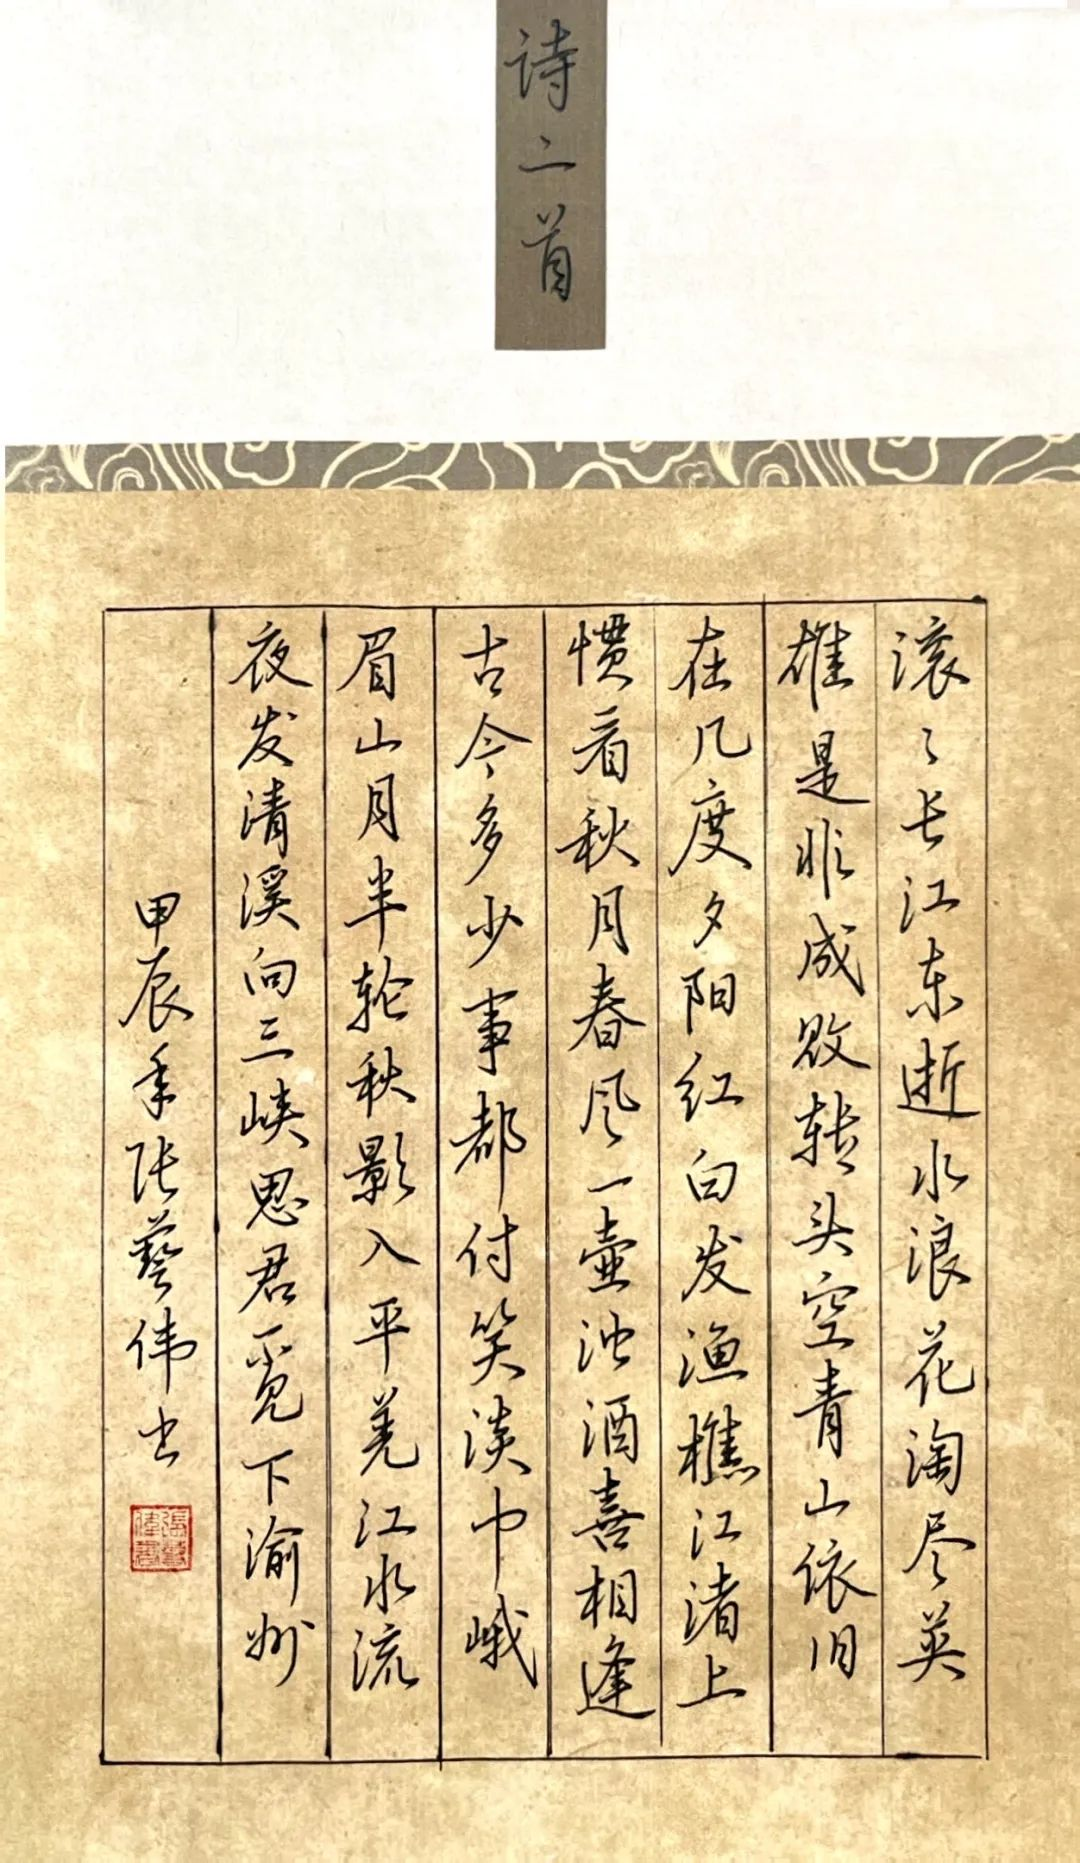 诗二首
滚〻长江东逝水浪花淘尽英
雄是非成败转头空青山依旧
在几度夕阳红白发渔樵江渚上
惯看秋月春风一壶浊酒喜相逢
古今多少事都付笑谈中峨
眉山月半轮秋影入平羌江水流
夜发清溪向三峡思君不见下渝州
甲辰年张藝伟书